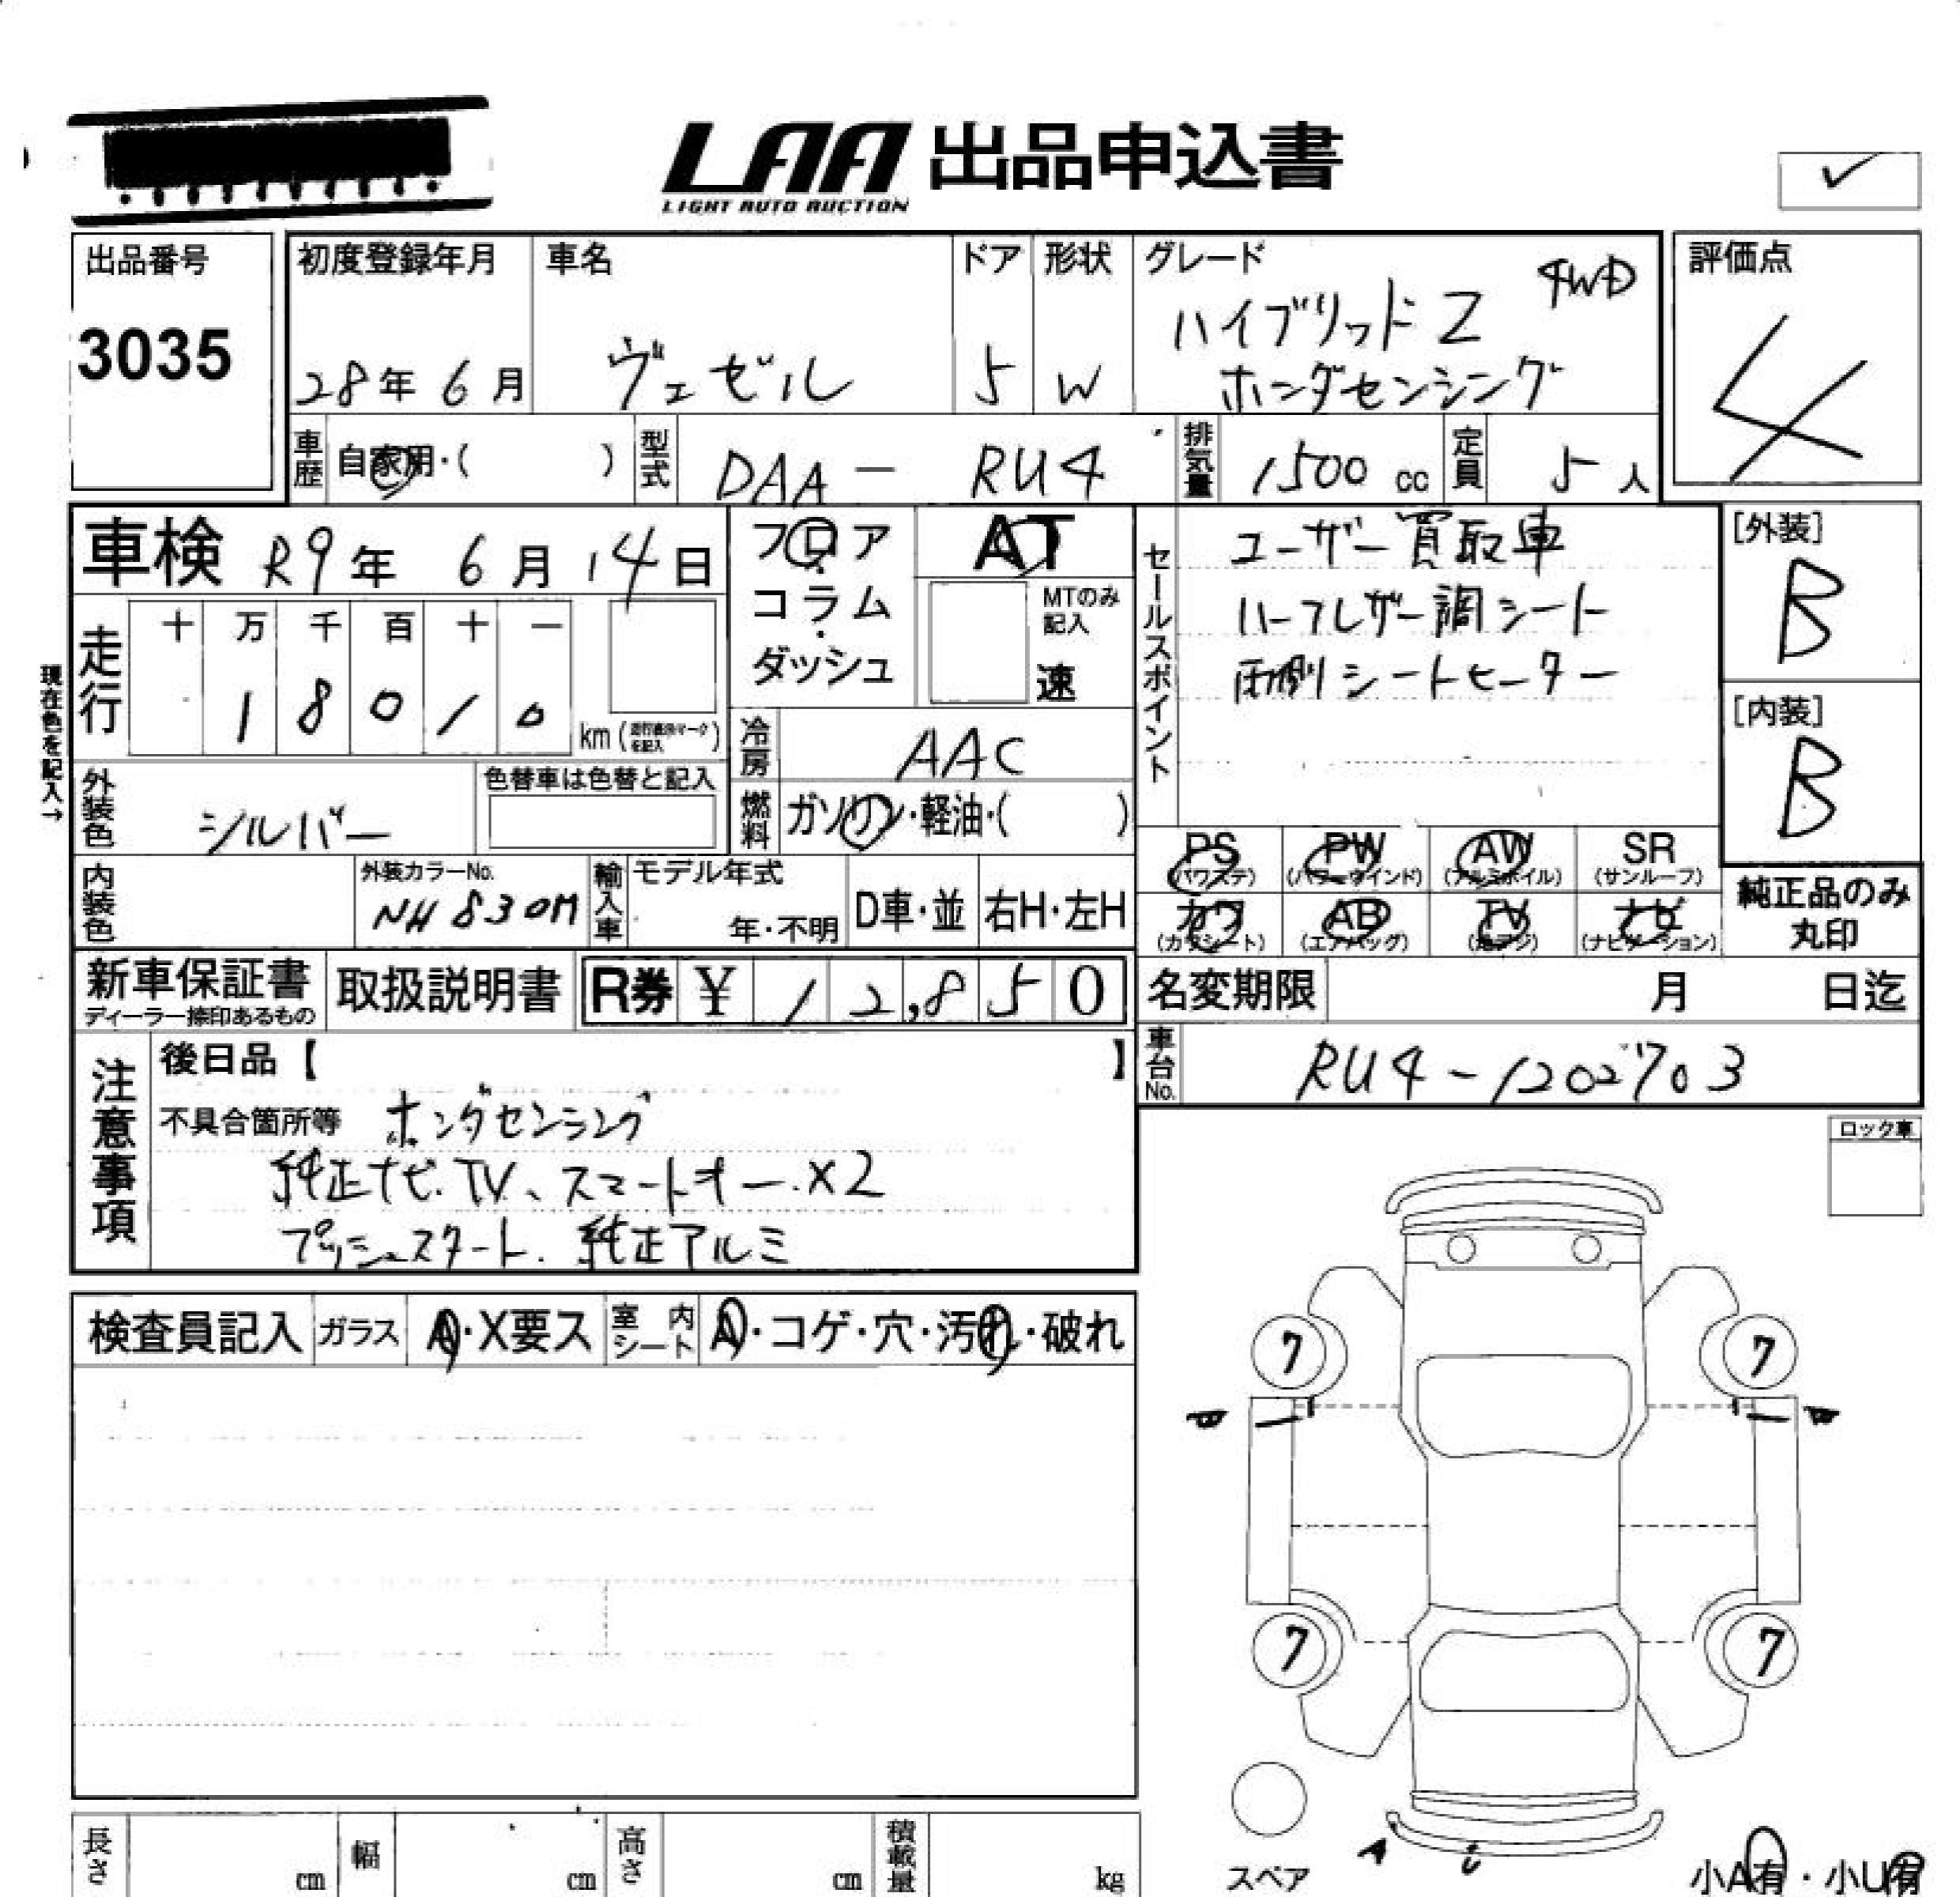 LAA 出品申込書
LIGHT AUTO AUCTION
✓
出品番号
3035
初度登録年月
28年6月
車名
ヴェゼル
ドア
5
形状
W
グレード
4WD
ハイブリッドZ
ホンダセンシング
評価点
4
車歴 自家用・( )
型式 DAA - RU4
排気量 1500 cc
定員 5人
車検 R9年 6月 14日
フロア・コラム・ダッシュ
AT
MTのみ記入
速
セールスポイント
ユーザー買取車
ハーフレザー調シート
両側シートヒーター
[外装]
B
[内装]
B
現在色を記入→
走行
十 万 千 百 十 一
1 8 0 1 0
km(走行直後マークを記入)
冷房 AAC
燃料 ガソリン・軽油・( )
外装色 シルバー
色替車は色替と記入
内装色
外装カラーNo.
NH 830M
輸入車
モデル年式
年・不明
D車・並
右H・左H
PS
(パワステ)
PW
(パワーウインド)
AW
(アルミホイル)
SR
(サンルーフ)
カワ
(カワシート)
AB
(エアバッグ)
TV
(地デジ)
ナビ
(ナビゲーション)
純正品のみ
丸印
新車保証書
ディーラー捺印あるもの
取扱説明書
R券 ¥ 12,850
名変期限 月 日迄
車台No. RU4-1202703
注意事項
後日品【 】
不具合箇所等 ホンダセンシング
純正ナビ.TV、スマートキー.X2
プッシュスタート. 純正アルミ
ロック車
検査員記入
ガラス A・X要ス
室内シート A・コゲ・穴・汚れ・破れ
7
7
7
7
A
スペア
小A有・小U有
長さ cm
幅 cm
高さ cm
積載量 kg